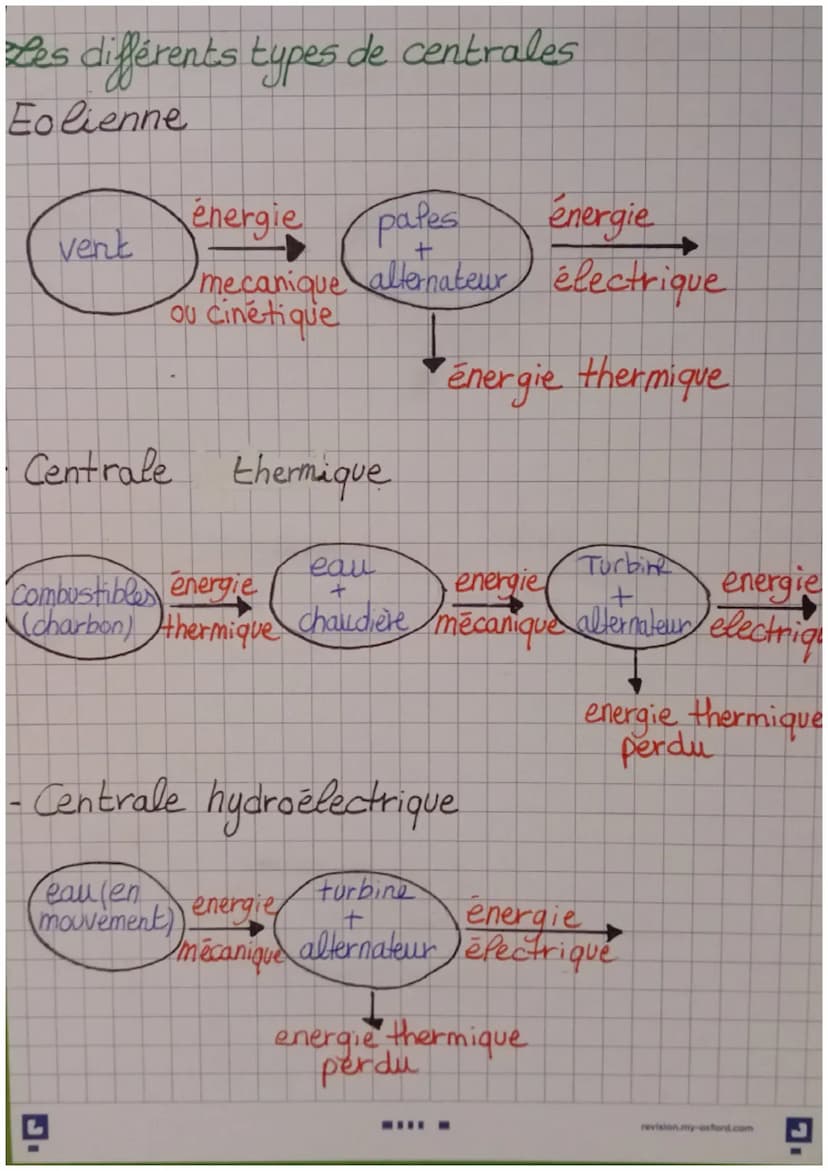 Les différents types de centrales
Eolienne
vent
énergie
mecanique
ou cinétique
pales
+
alternateur
énergie
électrique
énergie thermique
Centrale thermique
combustibles
(charbon)
énergie
thermique
eau
+
chaudière
energie
mécanique
Turbine
+
alternateur
energie
electriq
energie thermique
perdu
- Centrale hydroélectrique
eau (en
mouvement)
energie
mécanique
turbine
+
alternateur
énergie
électrique
energie thermique
perdu
revision.my-oxford.com